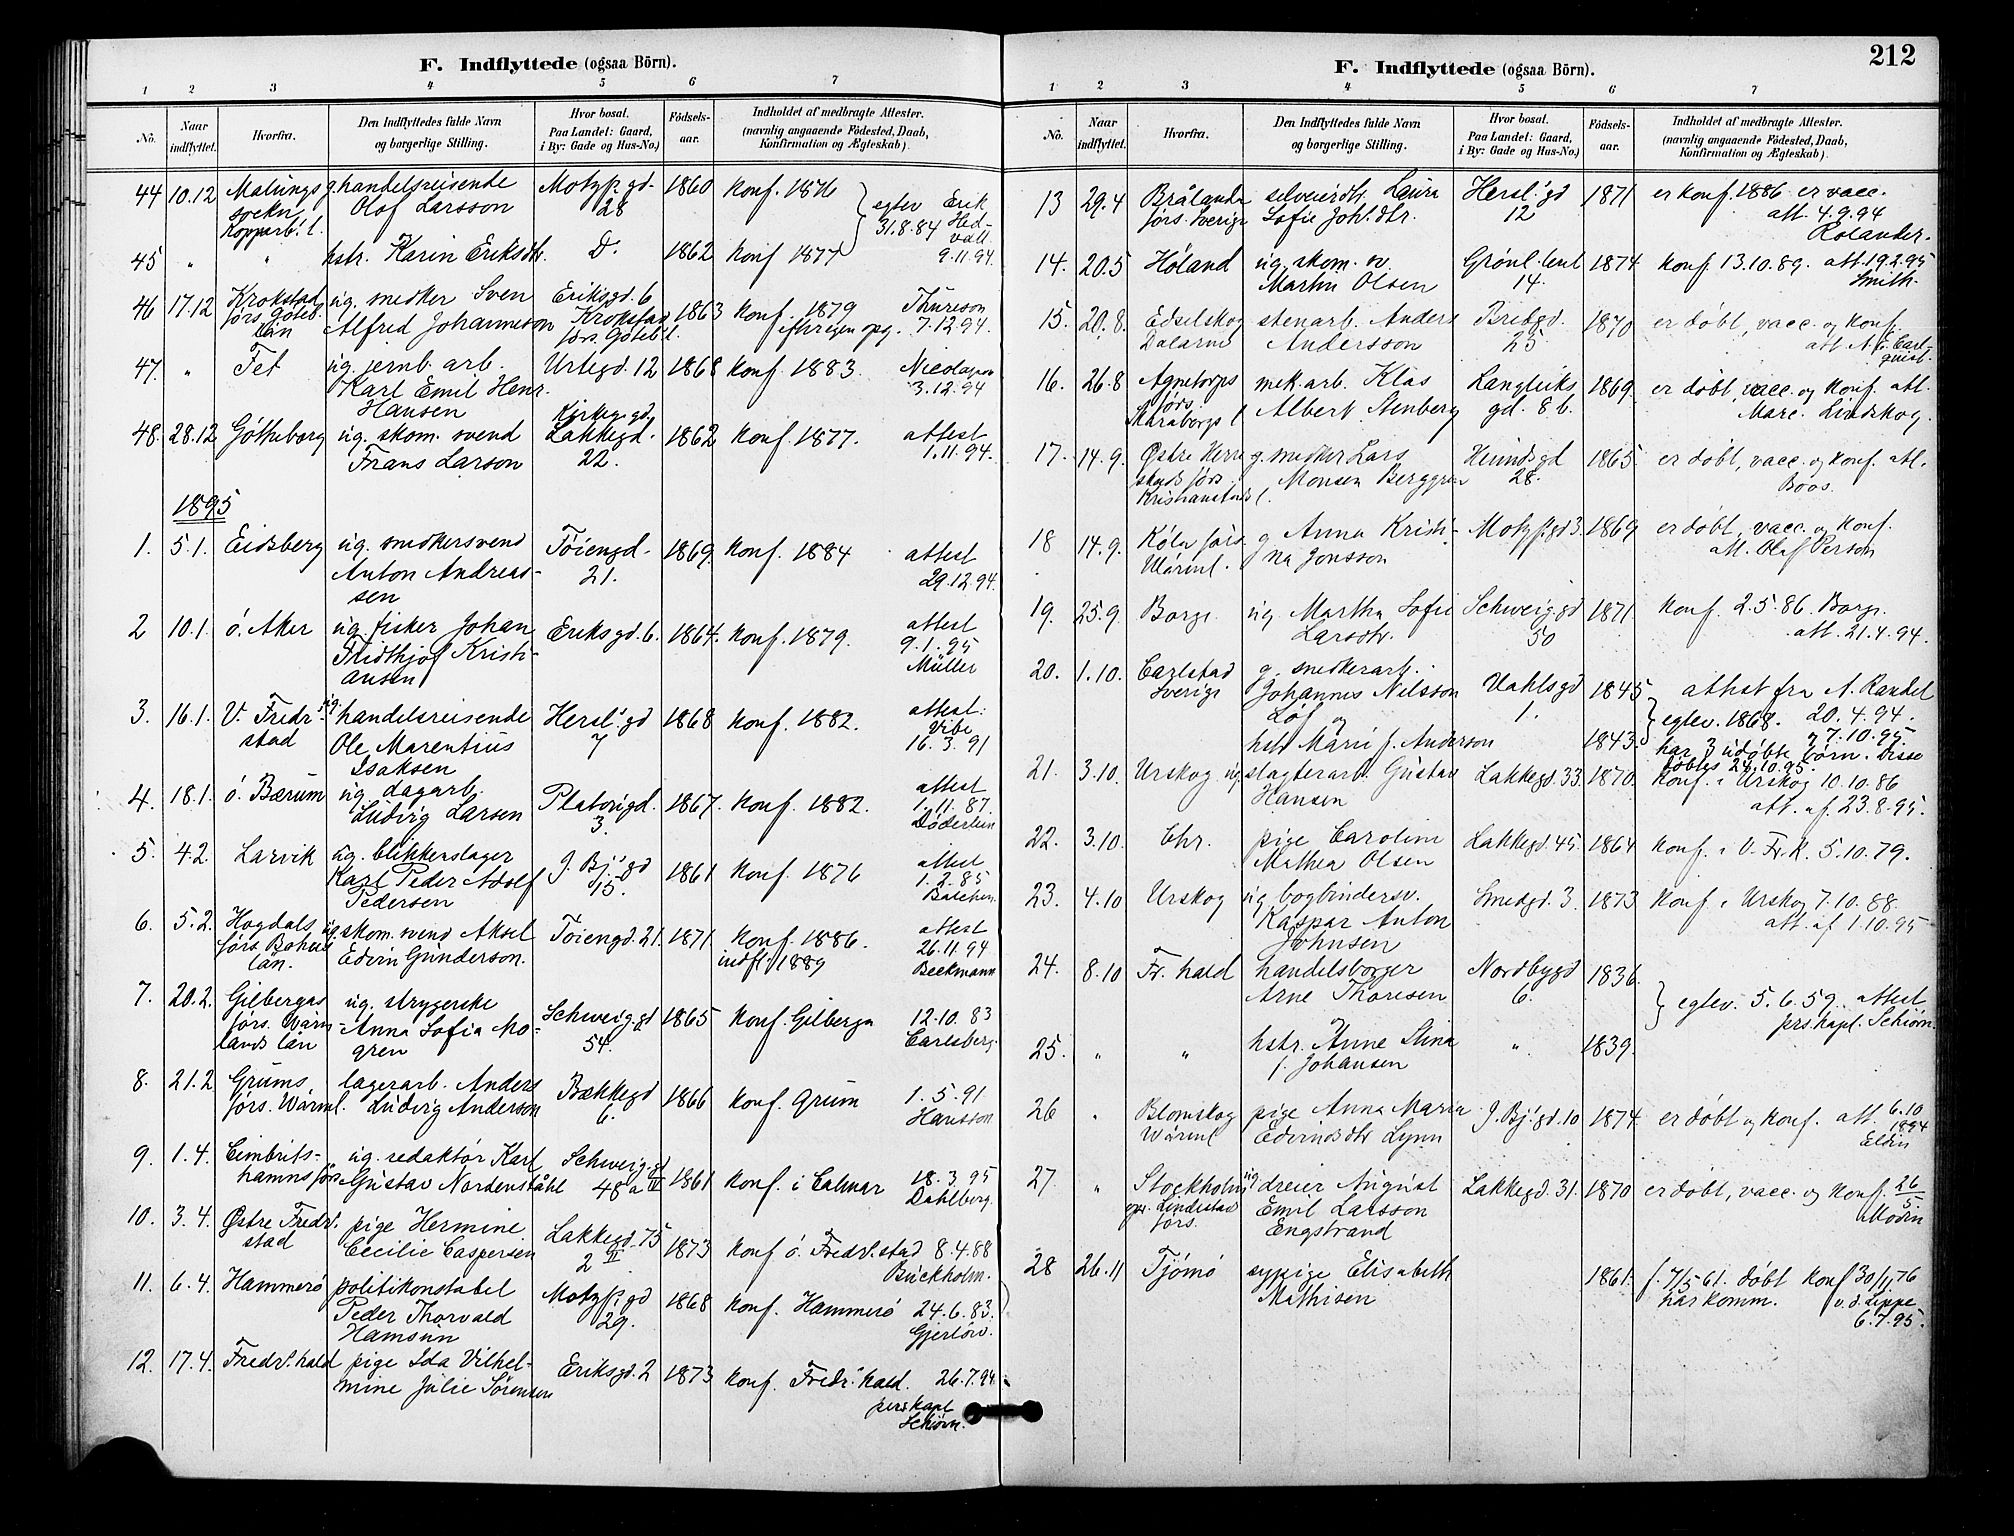 F. Indflyttede (ogsaa Börn).
1 2 3 4 5 6 7
No. Naar indflyttet. Hvorfra. Den Indflyttedes fulde Navn og borgerlige Stilling. Hvor bosat. Paa Landet: Gaard, i By: Gade og Hus-No.) Födsels-aar. Indholdet af medbragte Attester. (navnlig angaaende Födested, Daab, Konfirmation og Ægteskab).
44 10.12 Malungs g. handelsreisende Motzf. gd. 1860 Konf. 1876
sockn, Olof Larsson 28 egtev Erik
Kopparb. l. 31.8.84 Hed-
vall
45 " " hstr. Karin Eriksdtr. D. 1862 Konf 1877 9.11.94.
46 17.12 Krokstad ug. snedker Sven Eriksgd. 6 1863 Konf. 1879 Thureson
förs. Göteb. Alfred Johanneson Krokstad efter egen opg. 7.12.94.
län förs. Göteb. l.
47. " Fet ug. jernb. arb. Urtegd. 12 1868 Konf. 1883. Nicolaysen
Karl Emil Henr. 3.12.94
Hansen
48. 28.12 Götheborg ug. skom. svend Kirkeg. gd. 1862 Konf. 1877. attest
Frans Larson Lakkegd. 1.11.94.
22.
1895
1. 5.1. Eidsberg ug. snedkersvend Töiengd. 1869. Konf. 1884 attest
Anton Andreas- 21. 29.12.94.
sen
2 10.1. ö. Aker ug. fisker Johan Eriksgd. 6. 1864. Konf. 1879. attest
Fridthjof Kristi- 9.1.95
ansen Müller
3. 16.1. V. Fredr- ug. handelsreisende Hersl. gd 1868 Konf. 1882. attest.
stad Ole Marentius 7 Vibe
Isaksen 16.3.91
4. 18.1. ö. Bærum ug. dagarb. Platousgd. 1867. Konf. 1882. attest
Ludvig Larsen 3. 1.11.87
Döderlein
5. 4.2. Larvik ug. blikkenslager J. Bj. gd 1861 Konf. 1876 attest
Karl Peder Adolf 15. 1.2.85
Pedersen
6. 5.2. Hogdals ug. skom. svend Aksel Töiengd. 21. 1871. Konf. 1886. attest
förs Bohus Edvin Gunderson. indfl. 1889 26.11.94
län. Beckmann
7. 20.2. Gilbergas ug. strygerske Schweig. gd 1865 Konf. Gilberga 12.10.83
förs. Wärm- Anna Sofia Mo- 54. Carlsberg.
lands län gren
8. 21.2 Grums, lagerarb. Anders Bækkegd 1866 Konf. Grum 1.5.91
förs. Wärml. Ludvig Anderson 6. Hansson
9. 1.4. Cimbrits- ug. redaktör Karl Schweig. gd 1861 Konf. i Calmar 18.3.95
hamns förs Gustav Nordenståhl 48 a IV Dahlberg.
10. 3.4. Østre Fredr. pige Hermine Lakkegd. 75 1873 Konf ö. Fredr. stad 8.4.88
stad Cecilie Caspersen 2 II Buckholm.
11. 6.4. Hammerö politikonstabel Motzf. gd 1868 Konf. Hammerö 24.6.83.
Peder Thorvald 29. Gjerlöw.
Hamsun
12. 17.4. Fredr. hald pige Ida Vilhel- Eriksgd. 2 1873 Konf. Fredr. hald. 26.7.94
mine Julie Sörensen pers kapl
Schiørn.
212
F. Indflyttede (ogsaa Börn).
1 2 3 4 5 6 7
No. Naar indflyttet. Hvorfra. Den Indflyttedes fulde Navn og borgerlige Stilling. Hvor bosat. Paa Landet: Gaard, i By: Gade og Hus-No.) Födsels-aar. Indholdet af medbragte Attester. (navnlig angaaende Födested, Daab, Konfirmation og Ægteskab).
13 29.4 Brålanda selveierdtr. Laura Hersl. gd 1871 er konf. 1886 er vacc.
förs. Sverige Sofie Joh. dtr. 12 att. 4.9.94
Rolander.
14. 20.5 Høland ug. skom. sv. Grønl. leret 1874 Konf. 13.10.89. att. 19.2.95
Martin Olsen 14. Smith.
15. 20.8. Edselskog stenarb. Anders Bredgd. 1870 er döbt, vacc. og konf.
Dalarne Andersson 25 att. A. E. Carl-
quist.
16. 26.8 Agnetorps mek. arb. Klas Langleiks 1869. er döbt, vacc. og konf. att.
förs. Albert Stenberg gd. 8 b. Marc. Lindskog.
Skaraborgs l
17. 14.9. Østre Herre g. snedker Lars Heimdsgd 1865. er döbt, vacc. og konf. att.
stads förs. Monsen Berggren 28. Boos.
Kristianstads l.
18 14.9. Köla förs. g Anna Kristi- Motzf. gd 3. 1869 er döbt, vacc. og konf.
Wärml. na Jonsson att. Olaf Person
19. 25.9 Borge ug. Martha Sofie Schweig. gd 1871. Konf. 2.5.86. Borge.
Larsdtr. 50 att. 21.4.94.
20. 1.10. Carlstad g. snedkerarb. Vahlsgd 1845 attest fra A. Randel
Sverige Johannes Nilsson 1. egtev. 1868. 20.4.94.
Löf og & 7.10.95
hstr Marie f. Anderson 1843. har 3 udöbte börn. Disse
döbtes 24.10.95.
21. 3.10. Urskog ug. slagterarb. Gustav Lakkegd. 33. 1870. Konf. i Urskog 10.10.86
Hansen att. af 23.8.95.
22. 3.10. Chr. pige Caroline Lakkegd. 45. 1864 Konf. i V. Fr. k. 5.10.79.
Mathea Olsen
23. 4.10 Urskog ug bogbindersv. Smedgd. 3 1873 Konf i Urskog 7.10.88.
Kaspar Anton att. af 1.10.95
Johnsen
24. 8.10 Fr. hald handelsborger Nordbygd 1836.
Arne Thoresen 6. egtev. 5.6.59. attest
pers. kapl. Schiørn.
25. " " hstr. Anne Stina " 1839.
f. Johansen
26 " Blomskog pige Anna Maria J. Bj. gd. 10 1874. er döbt og konf. att. 6.10
Wärml Edvindsdtr Lynn 1894
Eldin
27. " Stockholm ug dreier August Lakkegd. 31. 1870 er döbt, vacc. og konf. 26/5
Lindestad Emil Larsson Modin
förs. Engstrand
28 26.11 Tjömö sypige Elisabeth 1861. f. 7/5 61. döbt konf 30/11 76
Mathisen har komm. v. d. Lippe
6.7.95.